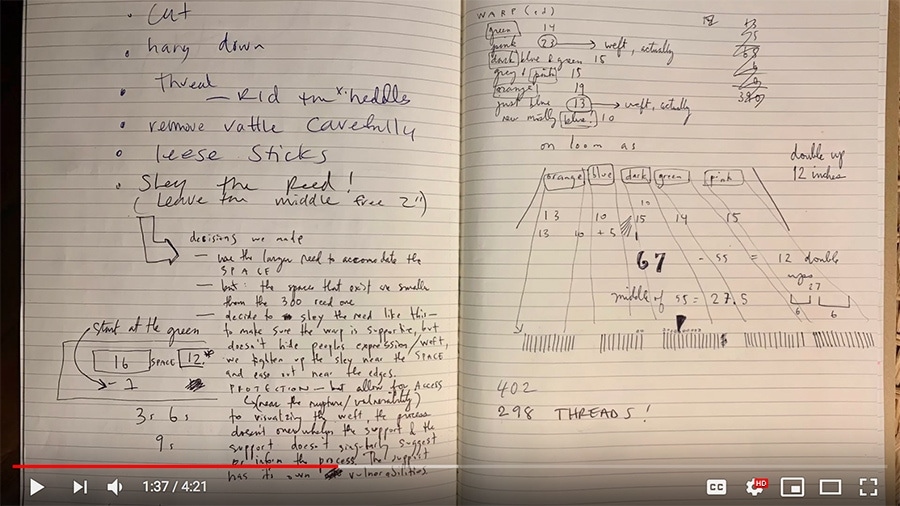 • Cut
• hang down
• Thread
— Rid the heddles
• remove rattle carefully
• leese sticks
• Sley the Reed!
(Leave the middle free 2")
decisions we made
— use the larger reed to accomodate the
SPACE
— but: the spaces that exist are smaller
than the 300 reed one
— decide to sley the reed like this—
to make sure the warp is supportive, but
doesn't hide peoples expression/weft,
we tighten up the sley near the SPACE
and ease out near the edges.
PROTECTION — but allow for Access
(near the rupture/vulnerability)
to visualizing the weft, the process
doesn't overwhelm the support & the
support doesn't suggest
or inform the process. The support
has its own vulnerabilities
start at the green
16 SPACE 12
- 1
3s 6s
9s
WARP (ed)
green 14
pink 23 → weft, actually
dark blue & green 15
grey & pink 15
orange! 19
just blue 13 → weft, actually
new mostly blue! 10
on loom as
double up
12 inches
orange blue dark green pink
10
13 10 15 14 15
13 10 + 5
67 - 55 = 12 double
ups
27
middle of 55 = 27.5
6 6
402
298 THREADS!
1:37 / 4:21
CC
HD